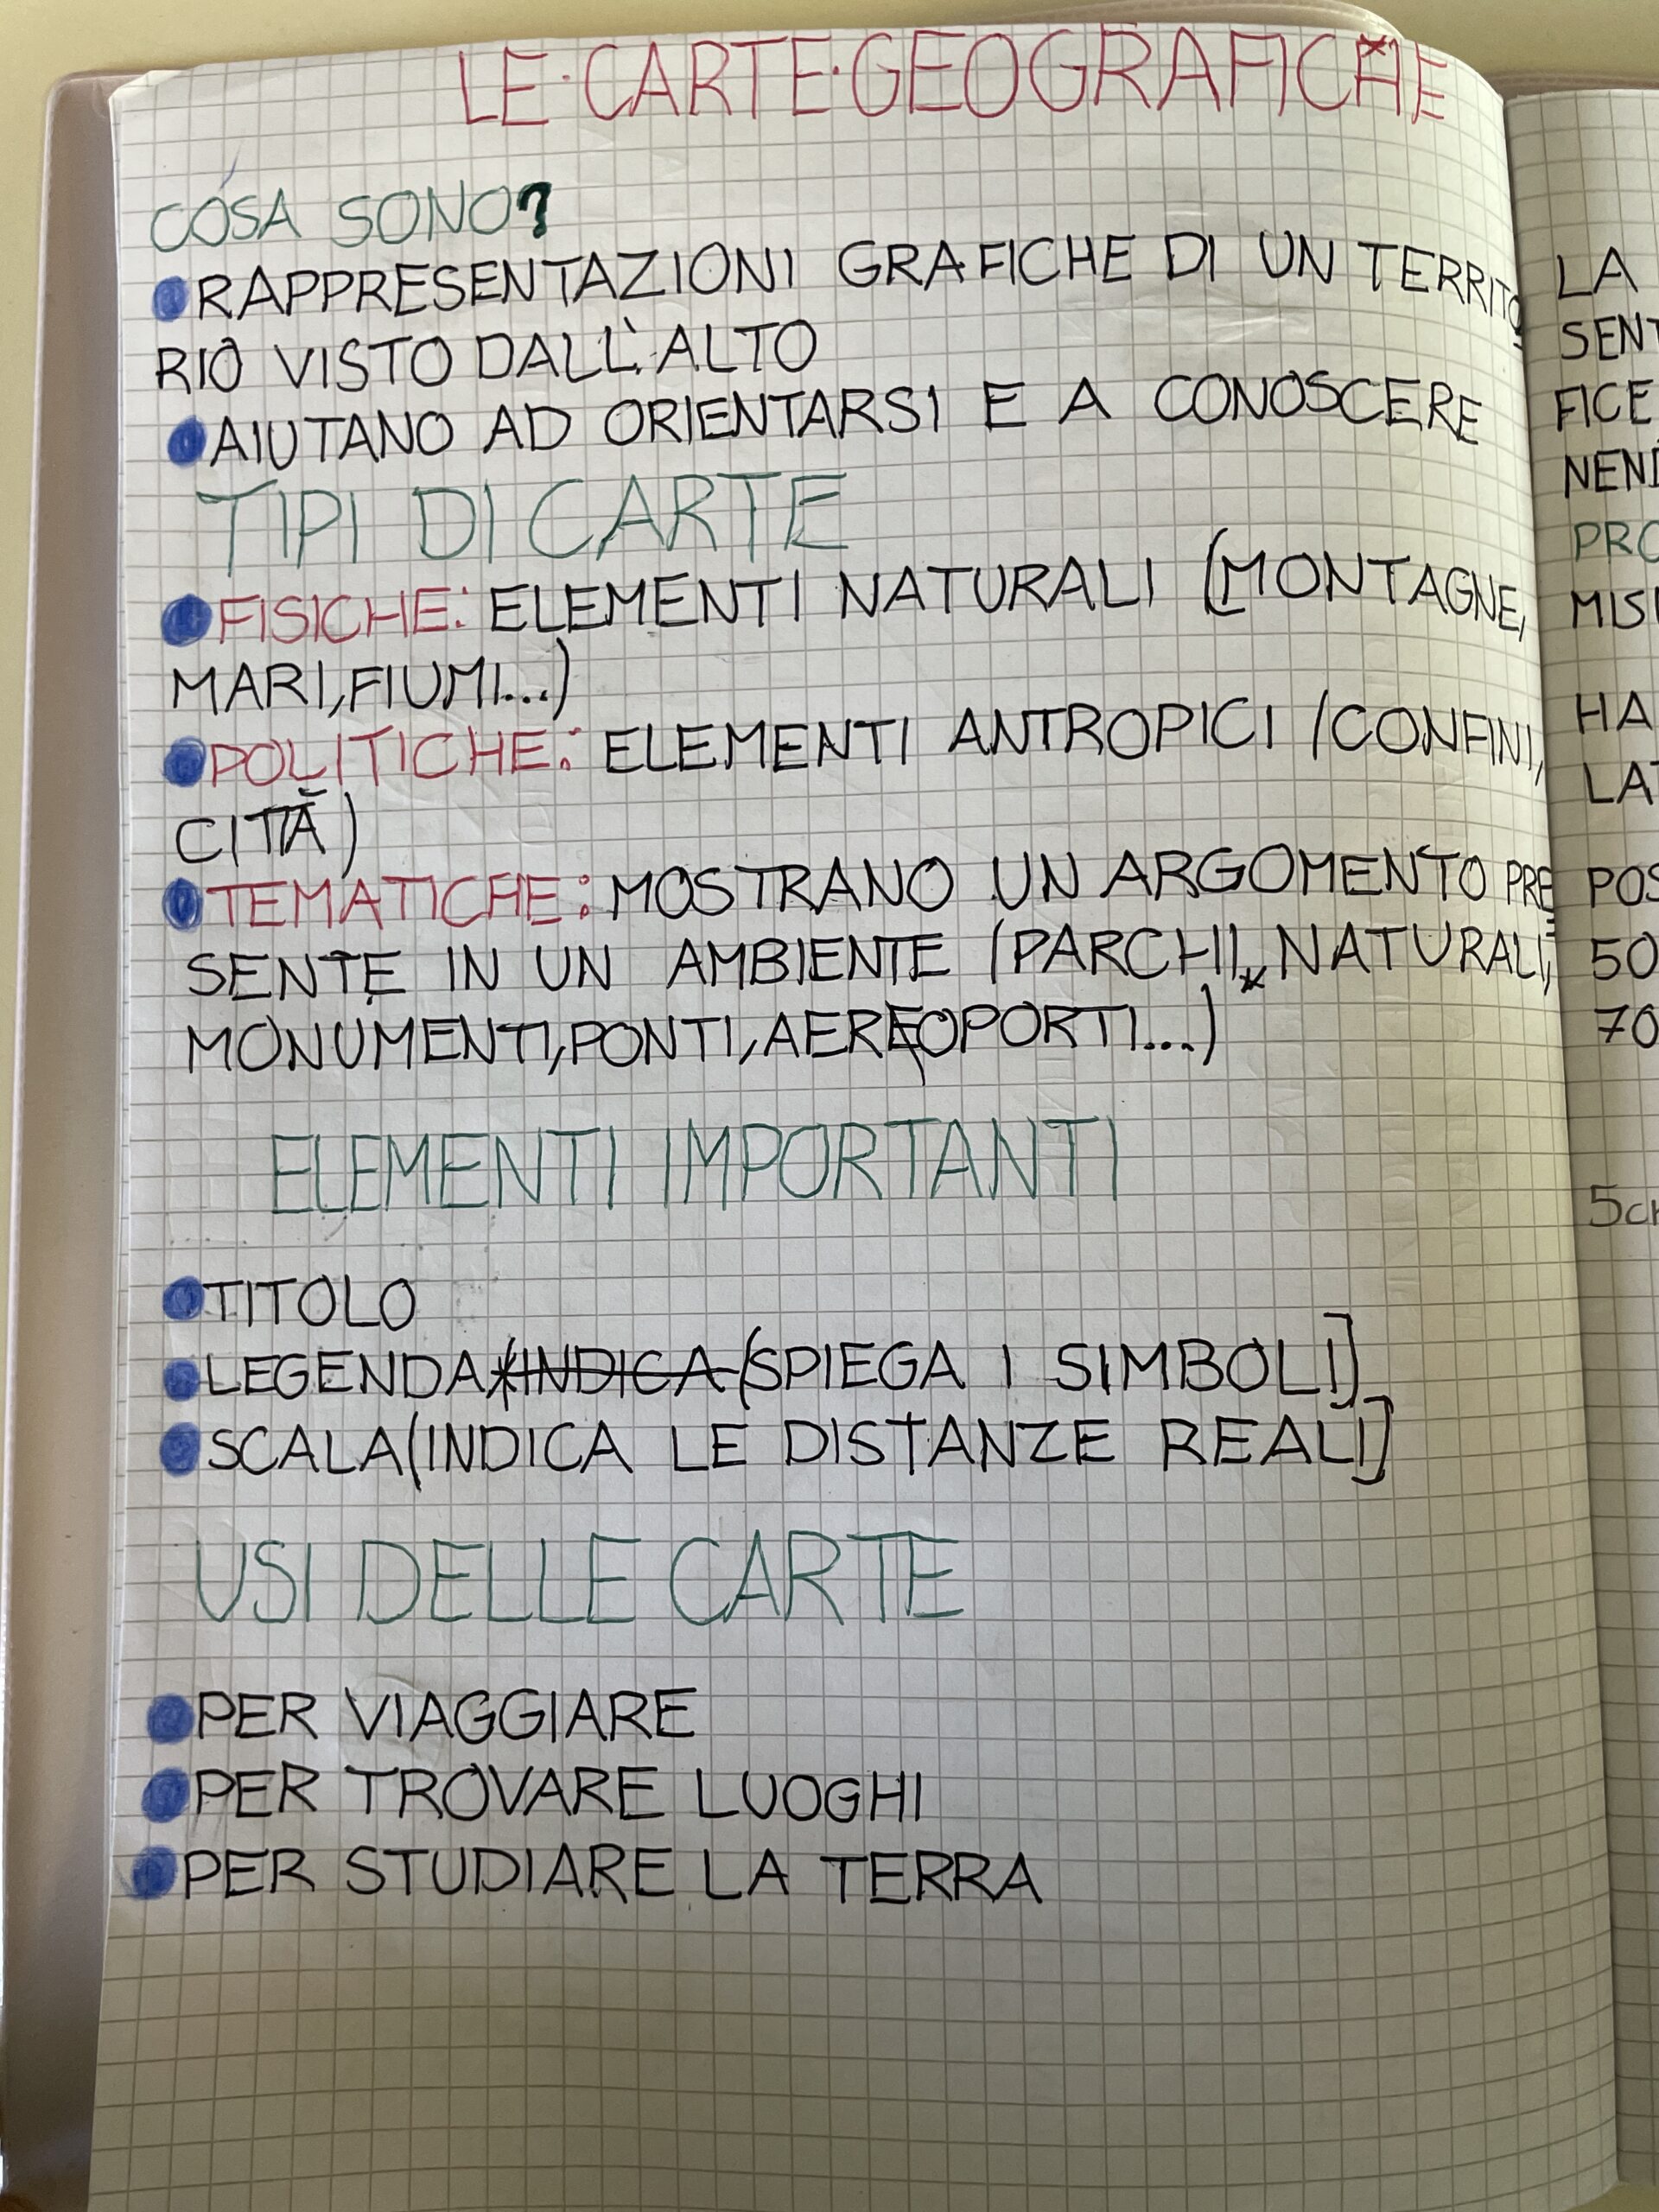 LE·CARTE·GEOGRAFICHE
COSA SONO?
RAPPRESENTAZIONI GRAFICHE DI UN TERRITO
RIO VISTO DALL'ALTO
AIUTANO AD ORIENTARSI E A CONOSCERE
TIPI DI CARTE
FISICHE: ELEMENTI NATURALI (MONTAGNE,
MARI,FIUMI...)
POLITICHE: ELEMENTI ANTROPICI (CONFINI,
CITTÀ)
TEMATICHE: MOSTRANO UN ARGOMENTO PRE
SENTE IN UN AMBIENTE (PARCHI NATURALI,
MONUMENTI,PONTI,AEREOPORTI...)
ELEMENTI IMPORTANTI
TITOLO
LEGENDA (INDICA (SPIEGA I SIMBOLI]
SCALA(INDICA LE DISTANZE REALI]
USI DELLE CARTE
PER VIAGGIARE
PER TROVARE LUOGHI
PER STUDIARE LA TERRA
LA
SENT
FICE
NEND
PRO
MISU
HA
LAT
POS
50
70